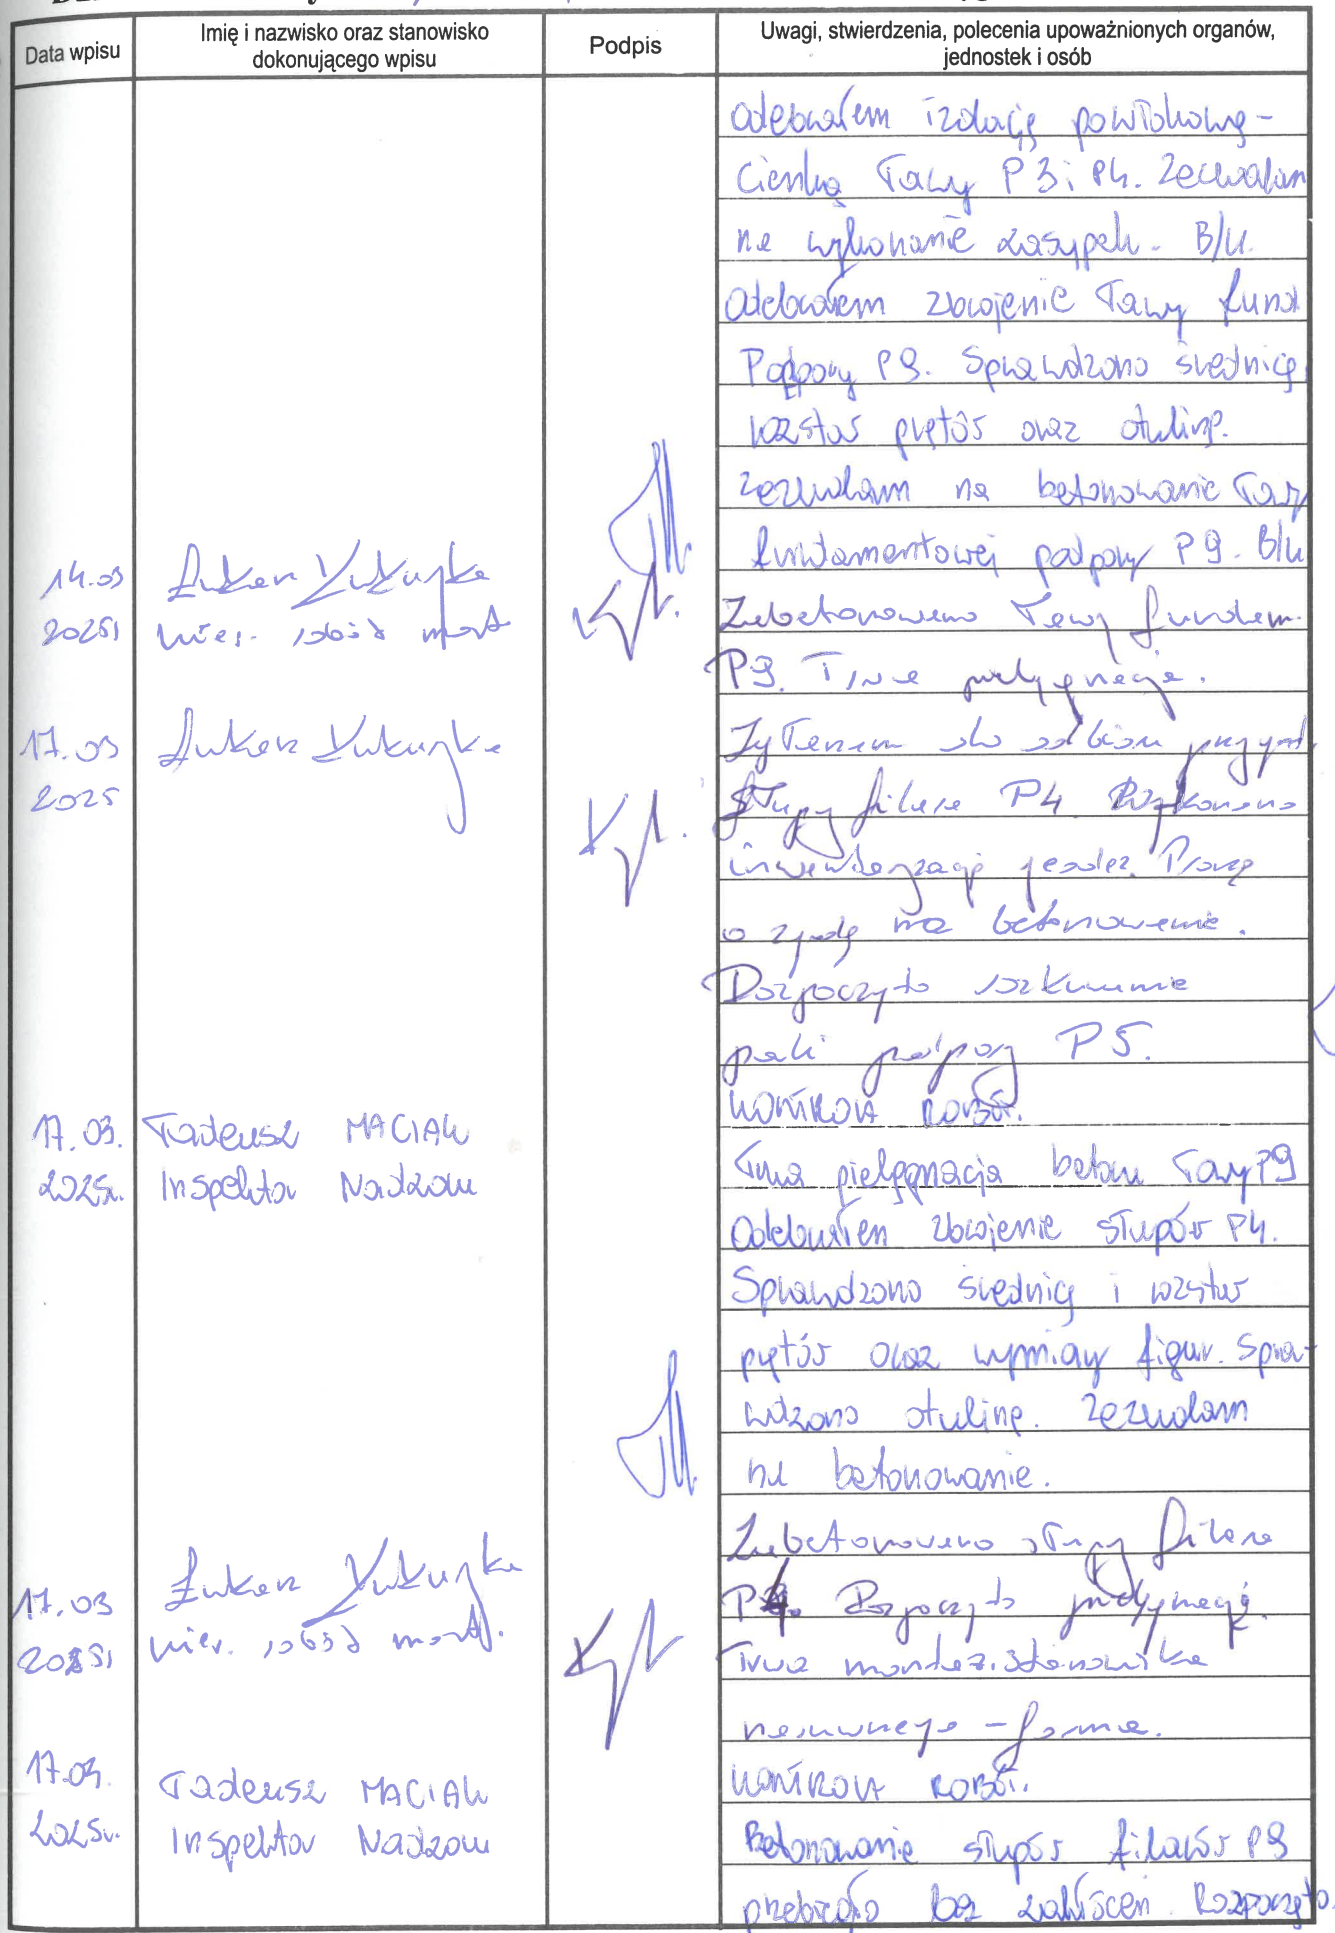 Data wpisu
Imię i nazwisko oraz stanowisko
dokonującego wpisu
Podpis
Uwagi, stwierdzenia, polecenia upoważnionych organów,
jednostek i osób
Odebrałem izolację powłokową-
cienką ławy P3 i P4. Zezwalam
na wykonanie zasypek. B/U.
Odebrałem zbrojenie ławy fund
Podpory P9. Sprawdzono średnicę,
rozstaw prętów oraz otulinę.
Zezwalam na betonowanie ławy
fundamentowej podpory P9. B/U
14.03
2025r
kier. robót most
Zabetonowano ławę fundam.
P9. Trwa pielęgnacja.
17.03
2025
Zgłaszam do odbioru
słupy filara P4. Wykonano
inwentaryzację geodez. Proszę
o zgodę na betonowanie.
Rozpoczęto rozkuwanie
pali podpory P5.
17.03.
2025r.
Tadeusz MACIAK
Inspektor Nadzoru
KONTROLA ROBÓT.
Trwa pielęgnacja betonu ławy P9
Odebrałem zbrojenie słupów P4.
Sprawdzono średnicę i rozstaw
prętów oraz wymiary figur. Spra-
wdzono otulinę. Zezwalam
na betonowanie.
17.03
2025r
kier. robót most.
Zabetonowano słupy filara
P4. Rozpoczęto pielęgnację.
Trwa montaż stanowiska
nasuwnego - forma.
17.03.
2025r.
Tadeusz MACIAK
Inspektor Nadzoru
KONTROLA ROBÓT.
Betonowanie słupów filarów P9
przebiegło bez zakłóceń. Rozpoczęto